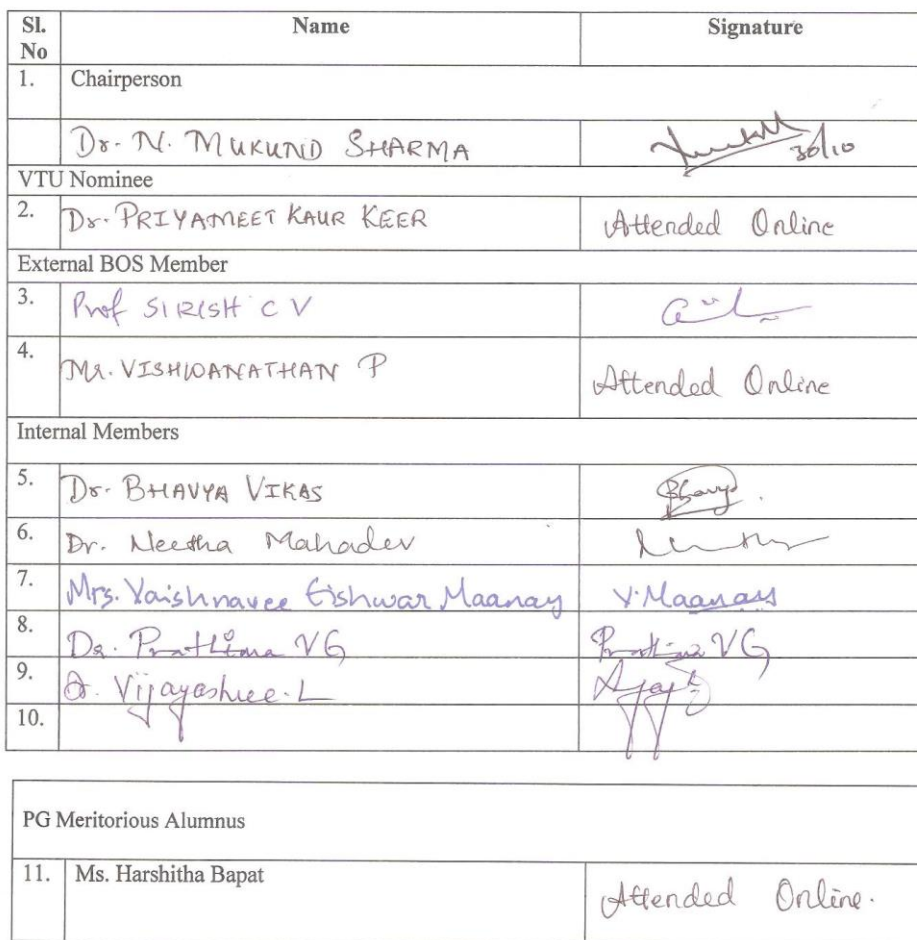 Sl. No Name Signature
1. Chairperson
Dr. N. MUKUND SHARMA 30/10
VTU Nominee
2. Dr. PRIYAMEET KAUR KEER Attended Online
External BOS Member
3. Prof SIRISH C V
4. Mr. VISHWANATHAN P Attended Online
Internal Members
5. Dr. BHAVYA VIKAS Bhavya
6. Dr. Neetha Mahadev
7. Mrs. Vaishnavee Eishwar Maanay V. Maanay
8. Dr. Prathima VG Prathima VG
9. Dr. Vijayashree. L
10.
PG Meritorious Alumnus
11. Ms. Harshitha Bapat Attended Online.